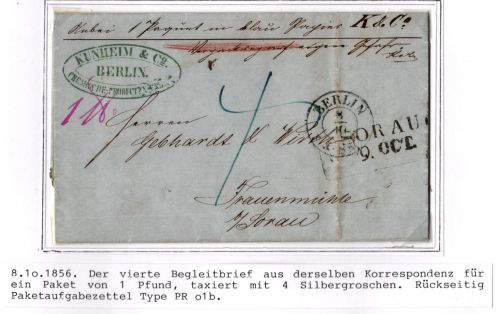 Anbei 1 Paquet in blau Papier K & Co
KUNHEIM & Co.
BERLIN.
BERLIN
8
10
SORAU
9. OCT.
4
Herren
Gebhardt & Wirth
Frauenmühle
b/Sorau
8.1o.1856. Der vierte Begleitbrief aus derselben Korrespondenz für
ein Paket von 1 Pfund, taxiert mit 4 Silbergroschen. Rückseitig
Paketaufgabezettel Type PR o1b.